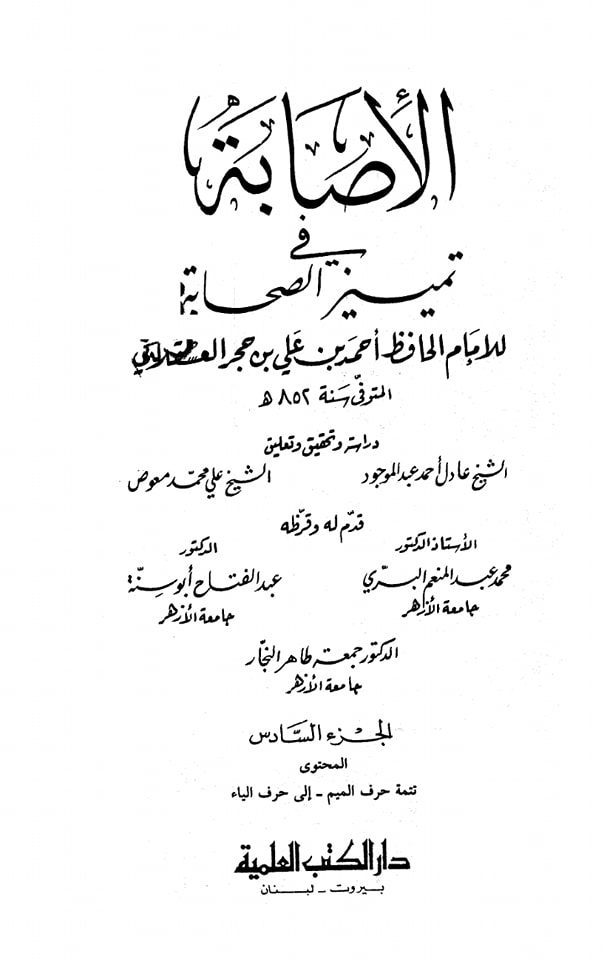 الأصابة
في
تمييز الصحابة
للإمام الحافظ أحمد بن علي بن حجر العسقلاني
المتوفى سنة ٨٥٢ ه
دراسة وتحقيق وتعليق
الشيخ عادل أحمد عبد الموجود
الشيخ علي محمد معوض
قدم له وقرظه
الأستاذ الدكتور
محمد عبد المنعم البري
جامعة الأزهر
الدكتور
عبد الفتاح أبو سنة
جامعة الأزهر
الدكتور جمعة طاهر النجار
جامعة الأزهر
الجزء السادس
المحتوى
تتمة حرف الميم - إلى حرف الياء
دار الكتب العلمية
بيروت - لبنان